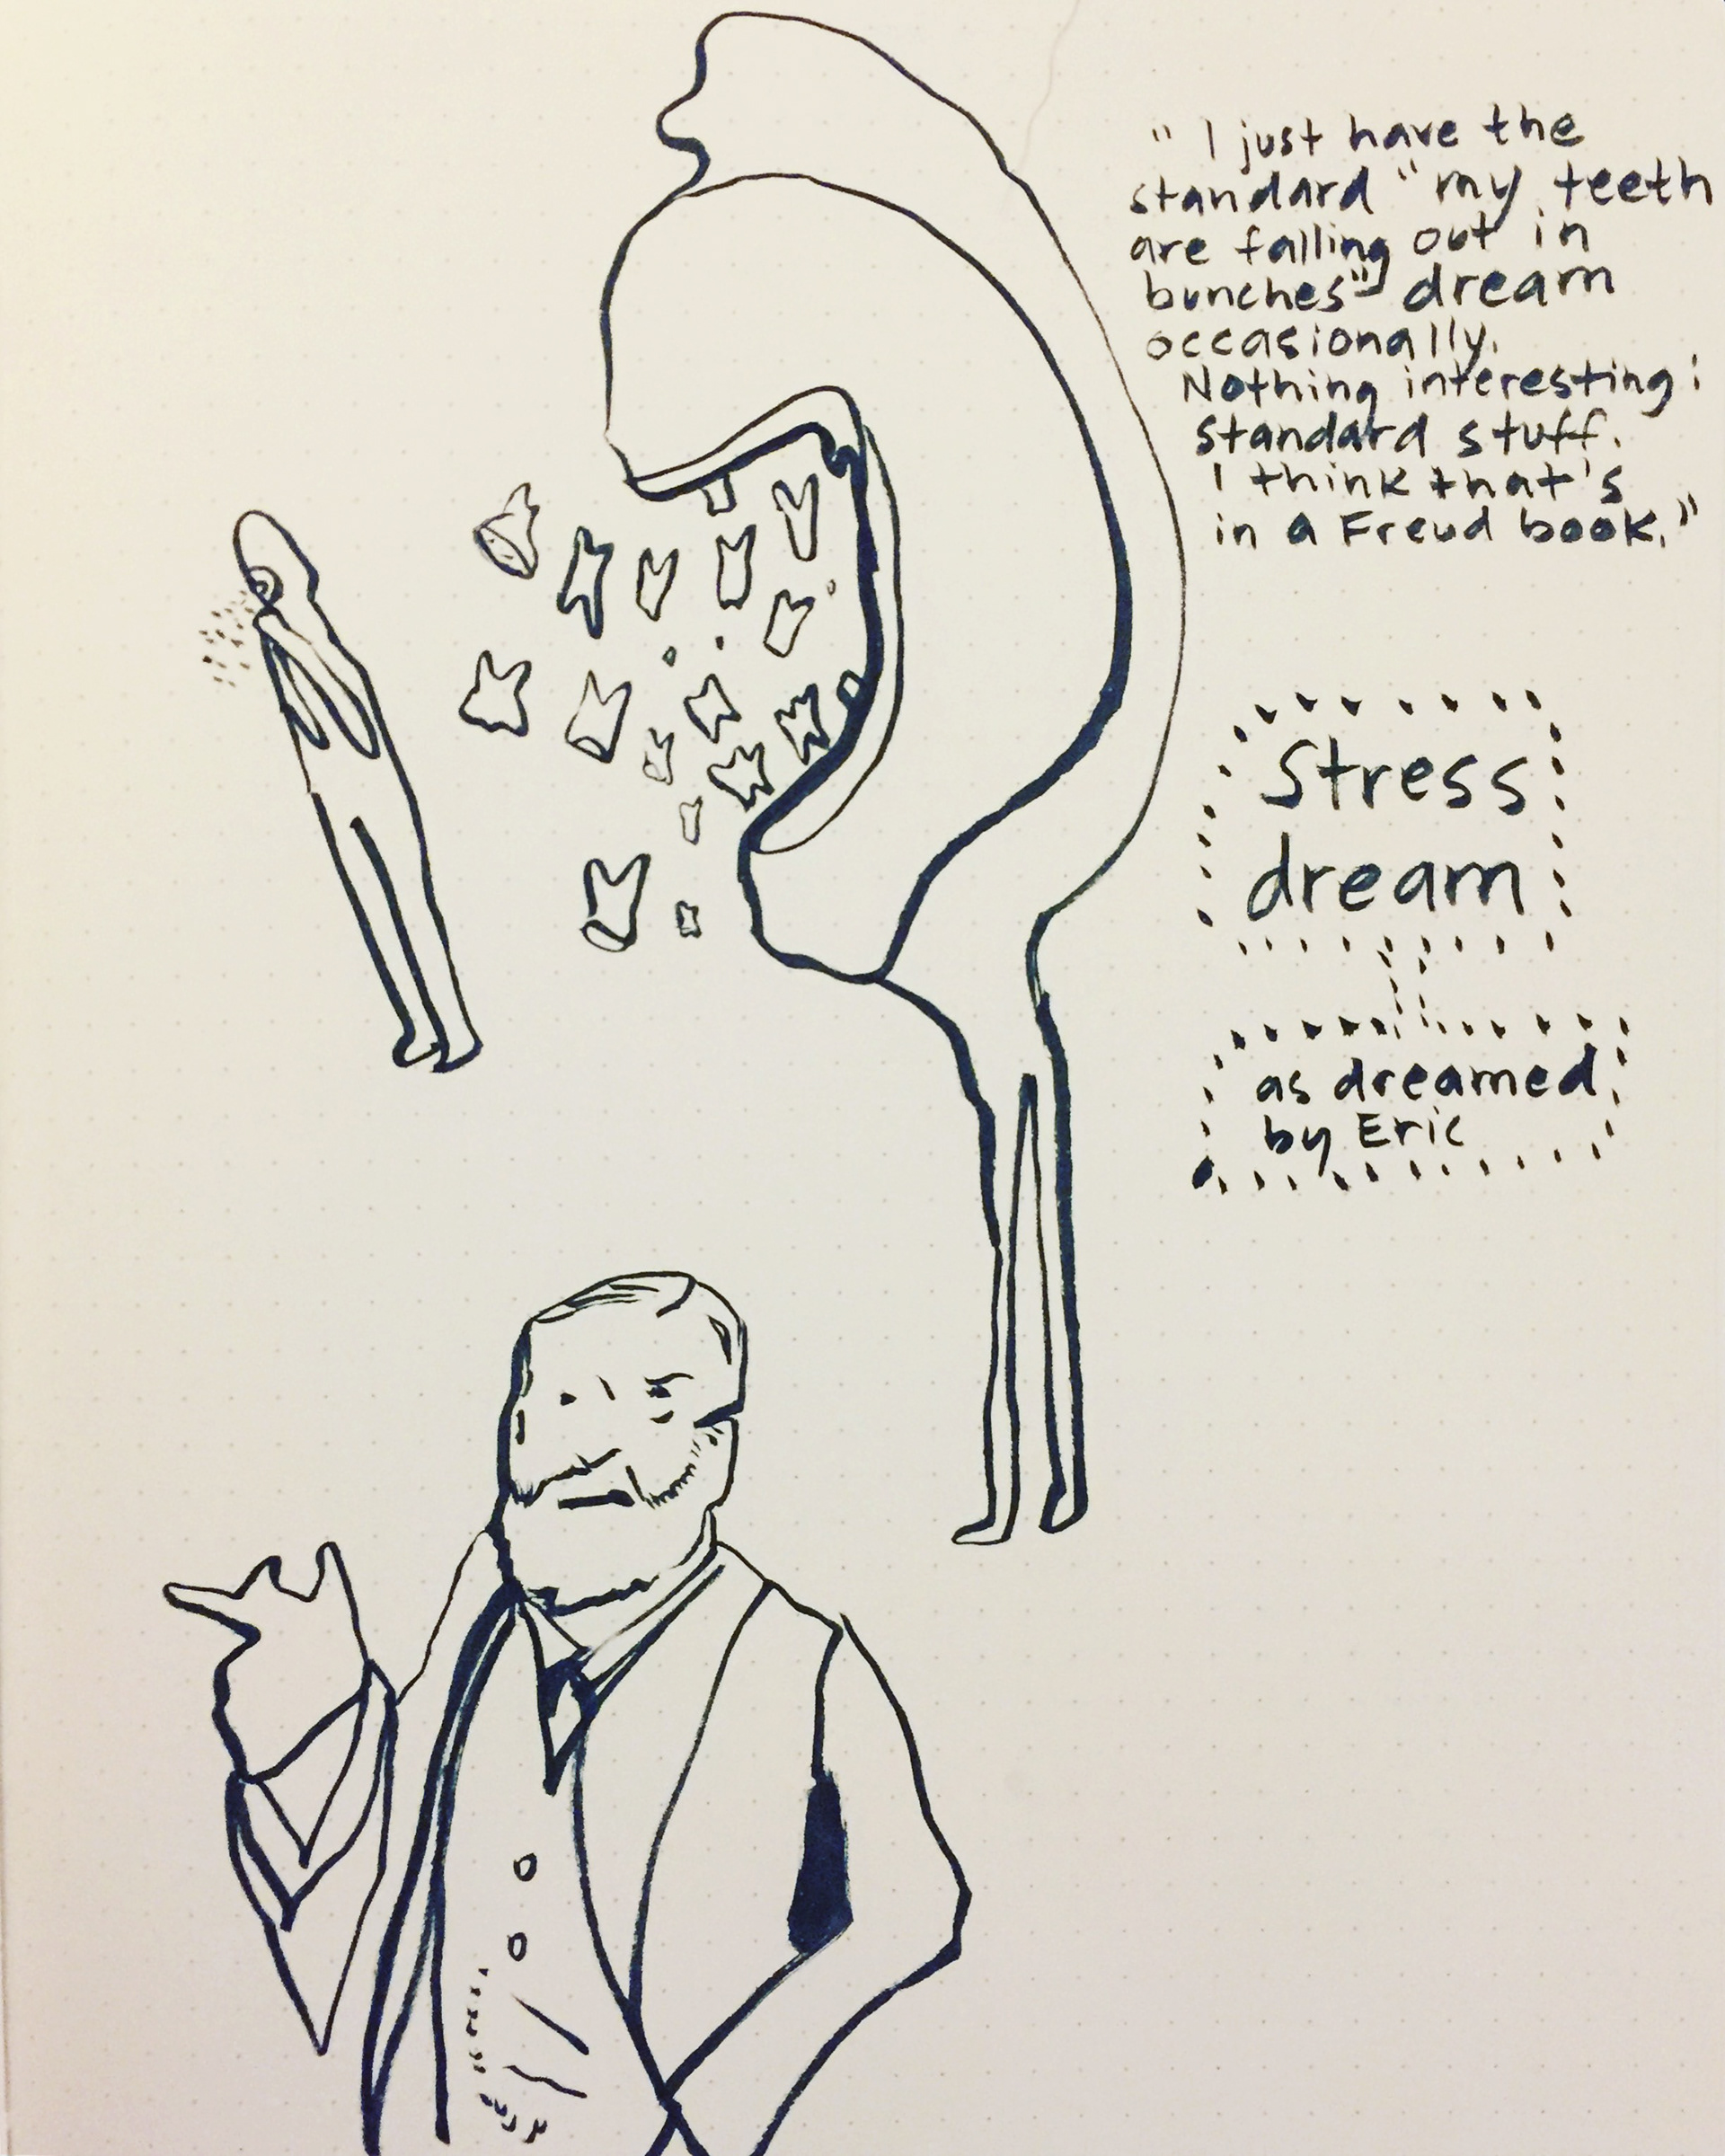 " I just have the
standard "my teeth
are falling out in
bunches" dream
occasionally.
Nothing interesting;
standard stuff.
I think that's
in a Freud book."
Stress
dream
as dreamed
by Eric